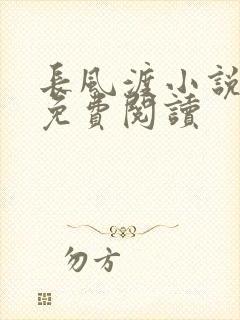 長風渡小說
免費閱讀
勿方